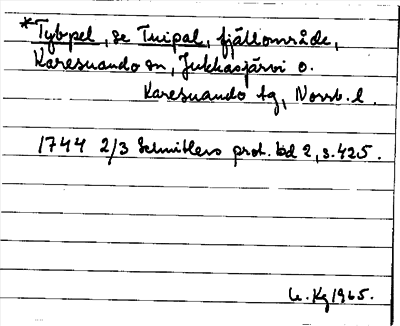 *Tybpel, se Tuipal, fjällområde,
Karesuando sn, Jukkasjärvi o.
Karesuando tg, Norrb. l.
1744 2/3 Schnitlers prot. bd 2, s. 425.
U. Kg 1965.